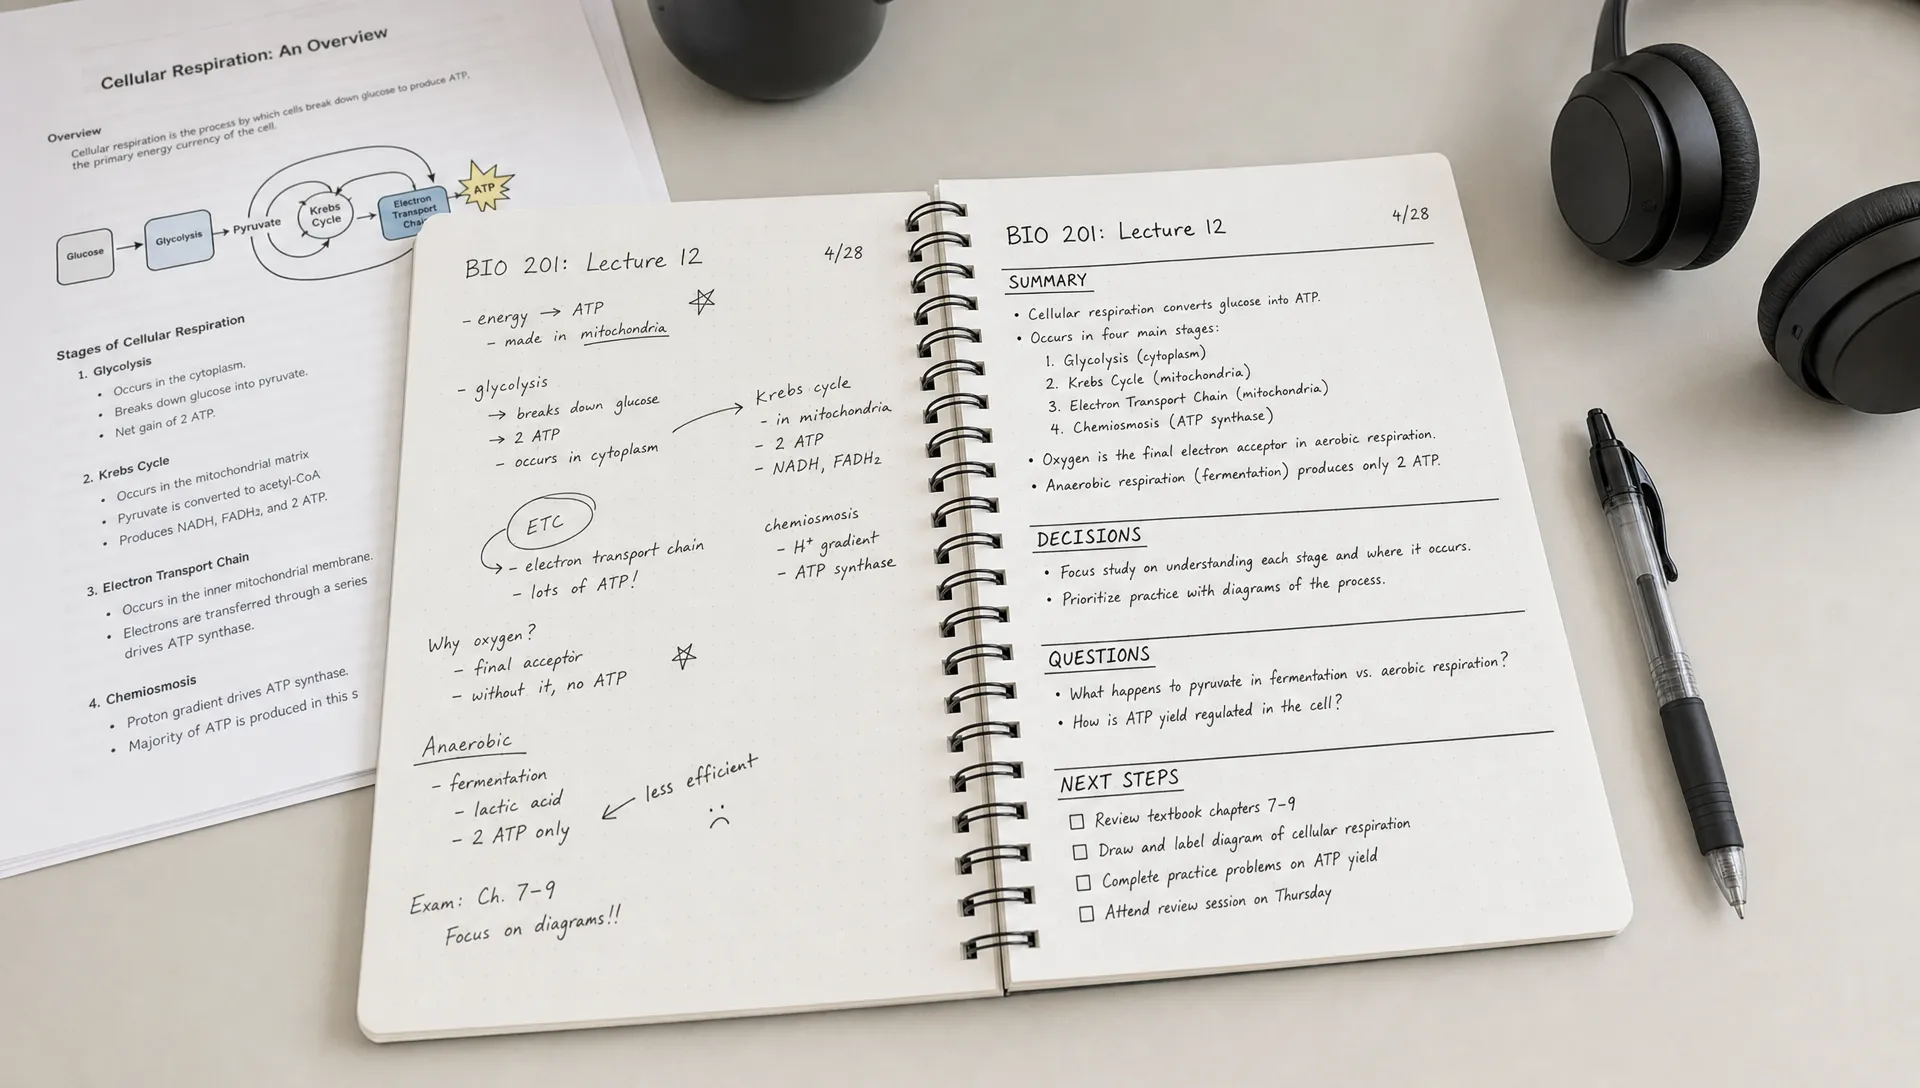 Cellular Respiration: An Overview
Overview
Cellular respiration is the process by which cells break down glucose to produce ATP,
the primary energy currency of the cell.
Glucose
Glycolysis
Pyruvate
Krebs
Cycle
Electron
Transport
Chain
ATP
Stages of Cellular Respiration
1. Glycolysis
• Occurs in the cytoplasm.
• Breaks down glucose into pyruvate.
• Net gain of 2 ATP.
2. Krebs Cycle
• Occurs in the mitochondrial matrix
• Pyruvate is converted to acetyl-CoA
• Produces NADH, FADH₂, and 2 ATP.
3. Electron Transport Chain
• Occurs in the inner mitochondrial membrane.
• Electrons are transferred through a series
drives ATP synthase.
4. Chemiosmosis
• Proton gradient drives ATP synthase.
• Majority of ATP is produced in this s
BIO 201: Lecture 12
4/28
- energy → ATP
- made in mitochondria
- glycolysis
→ breaks down glucose
→ 2 ATP
- occurs in cytoplasm
Krebs cycle
- in mitochondria
- 2 ATP
- NADH, FADH₂
ETC
- electron transport chain
- lots of ATP!
chemiosmosis
- H⁺ gradient
- ATP synthase
Why oxygen?
- final acceptor
- without it, no ATP
Anaerobic
- fermentation
- lactic acid
- 2 ATP only
less efficient
Exam: Ch. 7-9
Focus on diagrams!!
BIO 201: Lecture 12
4/28
SUMMARY
• Cellular respiration converts glucose into ATP.
• Occurs in four main stages:
1. Glycolysis (cytoplasm)
2. Krebs Cycle (mitochondria)
3. Electron Transport Chain (mitochondria)
4. Chemiosmosis (ATP synthase)
• Oxygen is the final electron acceptor in aerobic respiration.
• Anaerobic respiration (fermentation) produces only 2 ATP.
DECISIONS
• Focus study on understanding each stage and where it occurs.
• Prioritize practice with diagrams of the process.
QUESTIONS
• What happens to pyruvate in fermentation vs. aerobic respiration?
• How is ATP yield regulated in the cell?
NEXT STEPS
☐ Review textbook chapters 7-9
☐ Draw and label diagram of cellular respiration
☐ Complete practice problems on ATP yield
☐ Attend review session on Thursday